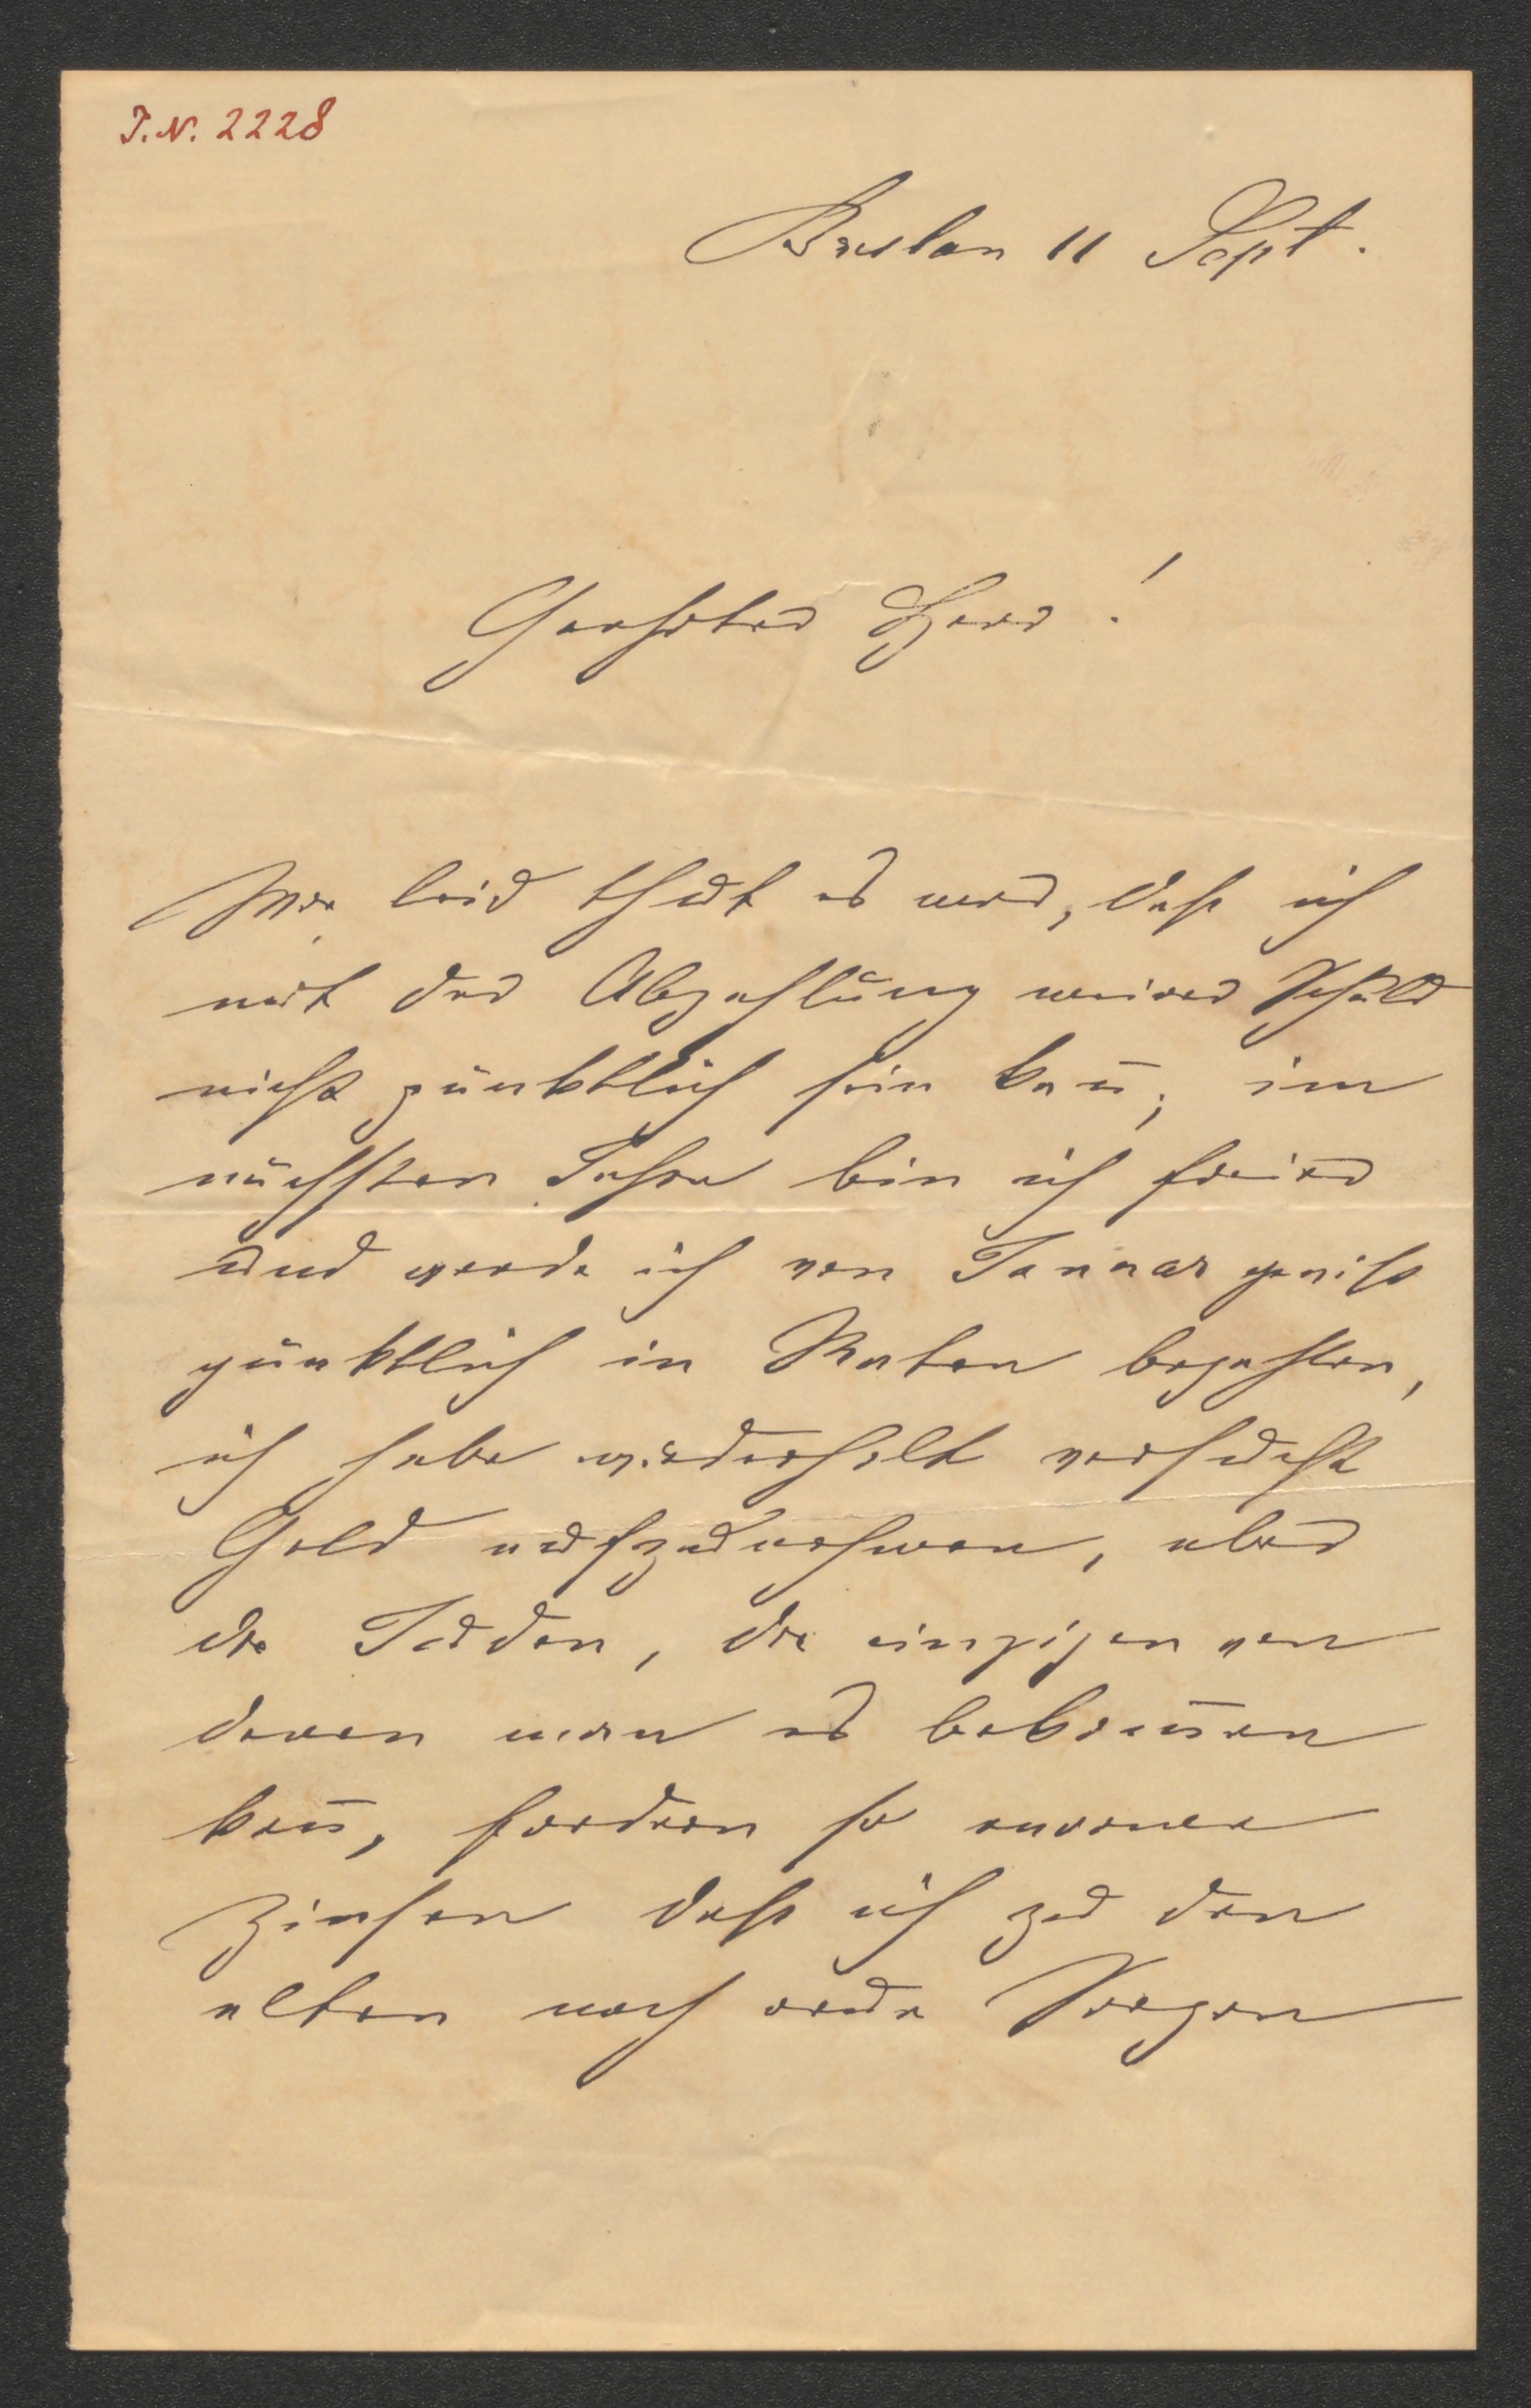 I.N. 2228
Breslau 11 Sept.
Geehrter Herr!
Wie leid thut es mir, daß ich
mit der Abzahlung meiner Schuld
nicht pünktlich sein kañ, im
nächsten Jahre bin ich freier
und werde ich von Januar gewiß
pünktlich in Raten bezahlen,
ich habe wiederholt versucht
Geld aufzunehmen, aber
die Juden, die einzigen von
denen man es bekom̄en
kañ, fordern so enorme
Zinsen daß ich zu den
alten noch neue Sorgen